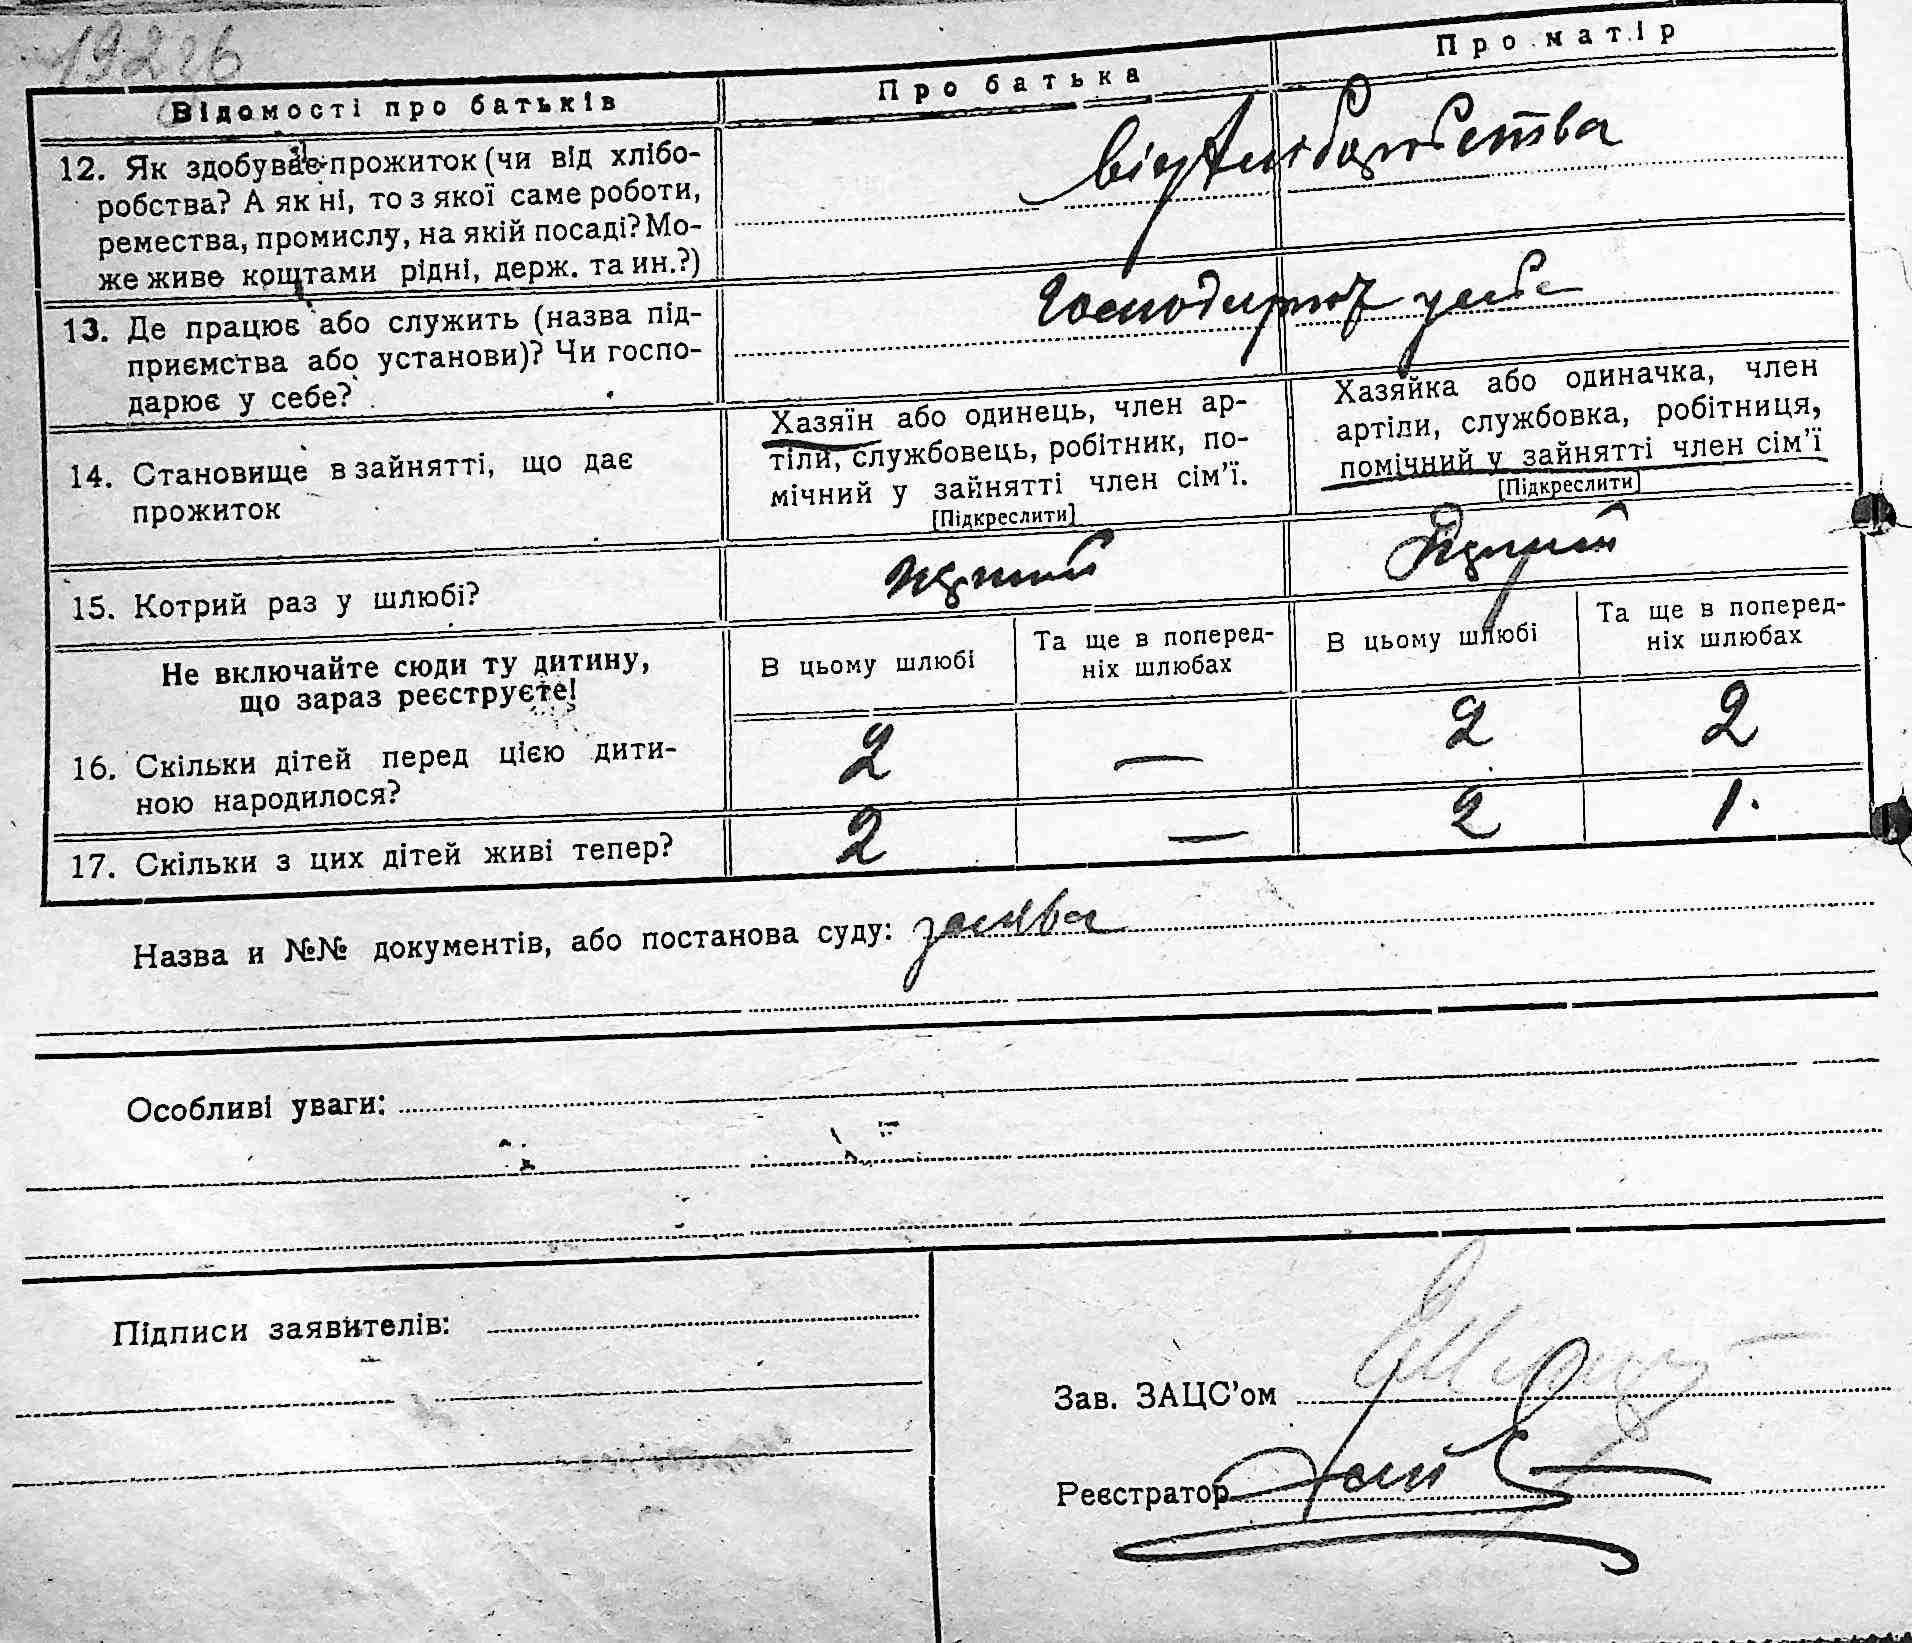 1926
Відомості про батьків
Про батька
Про матір
12. Як здобуває прожиток (чи від хлібо-
робства? А як ні, то з якої саме роботи,
ремества, промислу, на якій посаді? Мо-
же живе коштами рідні, держ. та ин.?)
від хліборобства
13. Де працює або служить (назва під-
приємства або установи)? Чи госпо-
дарює у себе?
Господарює у себе
14. Становище в зайнятті, що дає
прожиток
Хазяїн або одинець, член ар-
тіли, службовець, робітник, по-
мічний у зайнятті член сім'ї.
[Підкреслити]
Хазяйка або одиначка, член
артіли, службовка, робітниця,
помічний у зайнятті член сім'ї
[Підкреслити]
15. Котрий раз у шлюбі?
Не включайте сюди ту дитину,
що зараз реєструєте!
В цьому шлюбі
Та ще в поперед-
ніх шлюбах
В цьому шлюбі
Та ще в поперед-
ніх шлюбах
16. Скільки дітей перед цією дити-
ною народилося?
2 — 2 2
17. Скільки з цих дітей живі тепер?
2 — 2 1.
Назва и №№ документів, або постанова суду: заява
Особливі уваги:
Підписи заявителів:
Зав. ЗАЦС'ом
Реєстратор